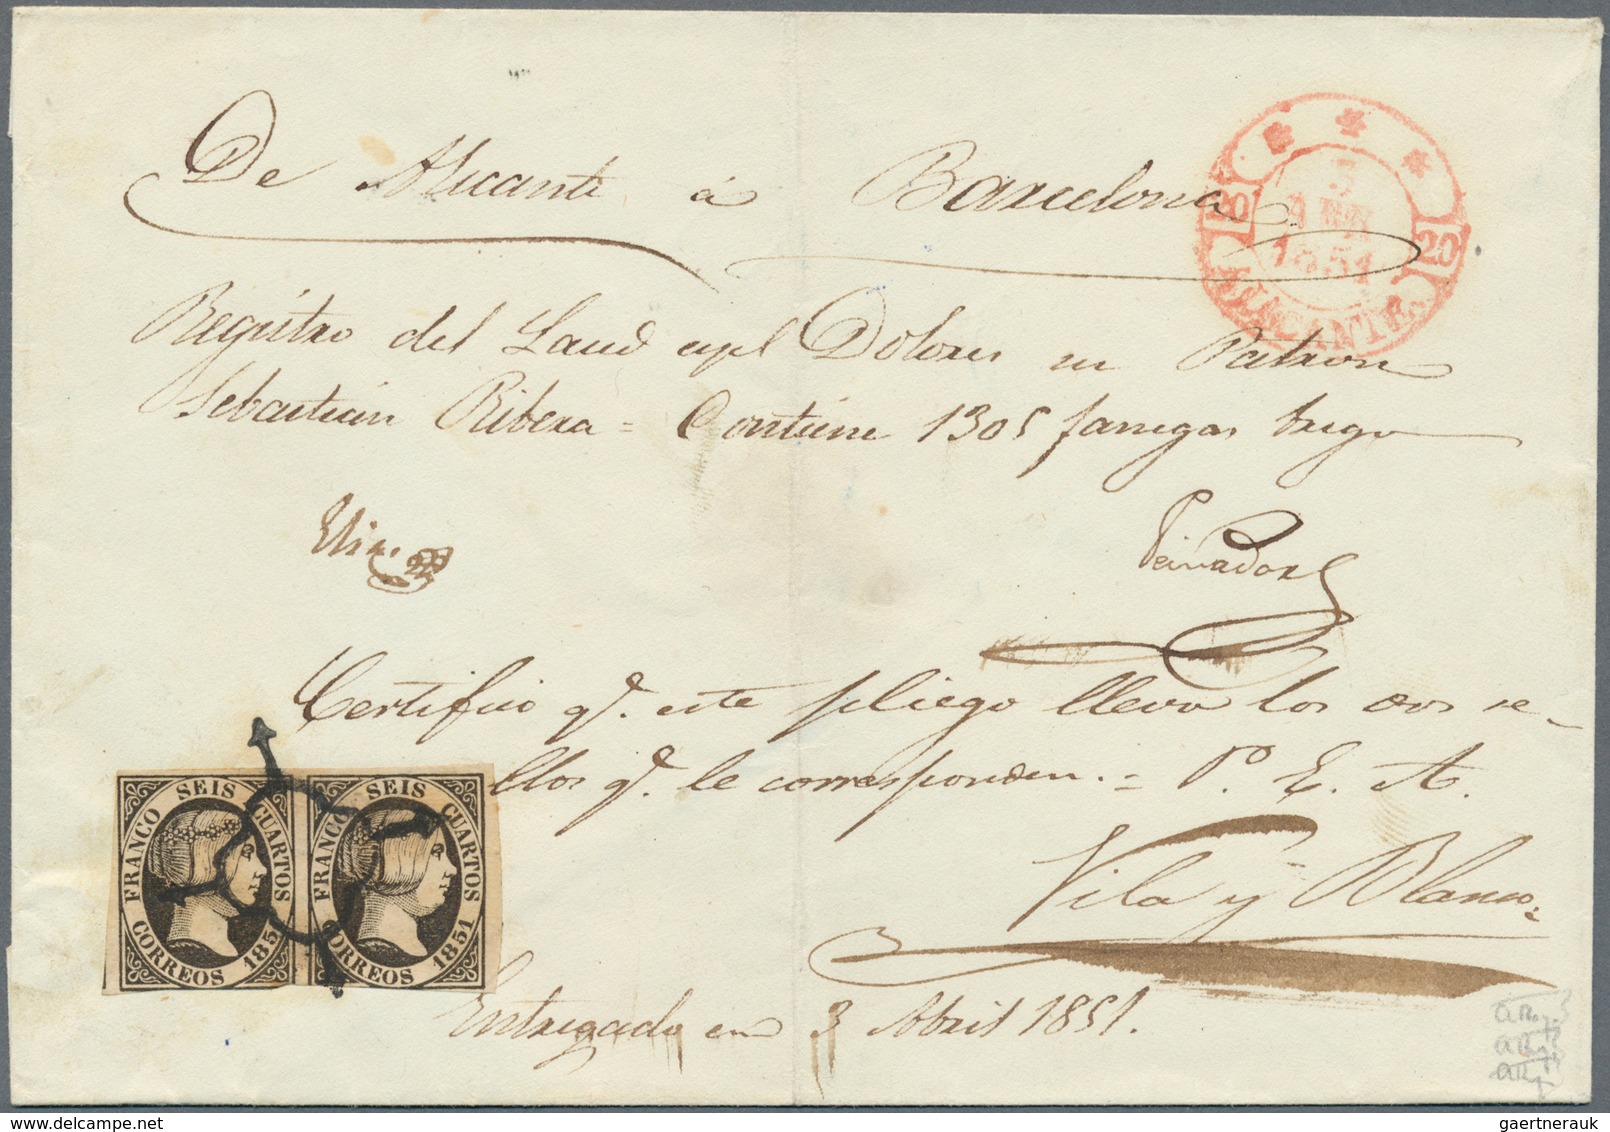 De Alicante á Barcelona
3
ABR
1851
20
20
ALICANTE.
Registro del Laud espl Dolores su Patron
Sebastian Ribera = Contiene 1305 fanegas trigo
Peinador
Certifico qe. este pliego lleva los dos se-
llos qe. le corresponden. = P. E. A.
Vila y Blanco
FRANCO SEIS CUARTOS
CORREOS 1851
FRANCO SEIS CUARTOS
CORREOS 1851
Entregado en 3 Abril 1851.
gaertnerauk